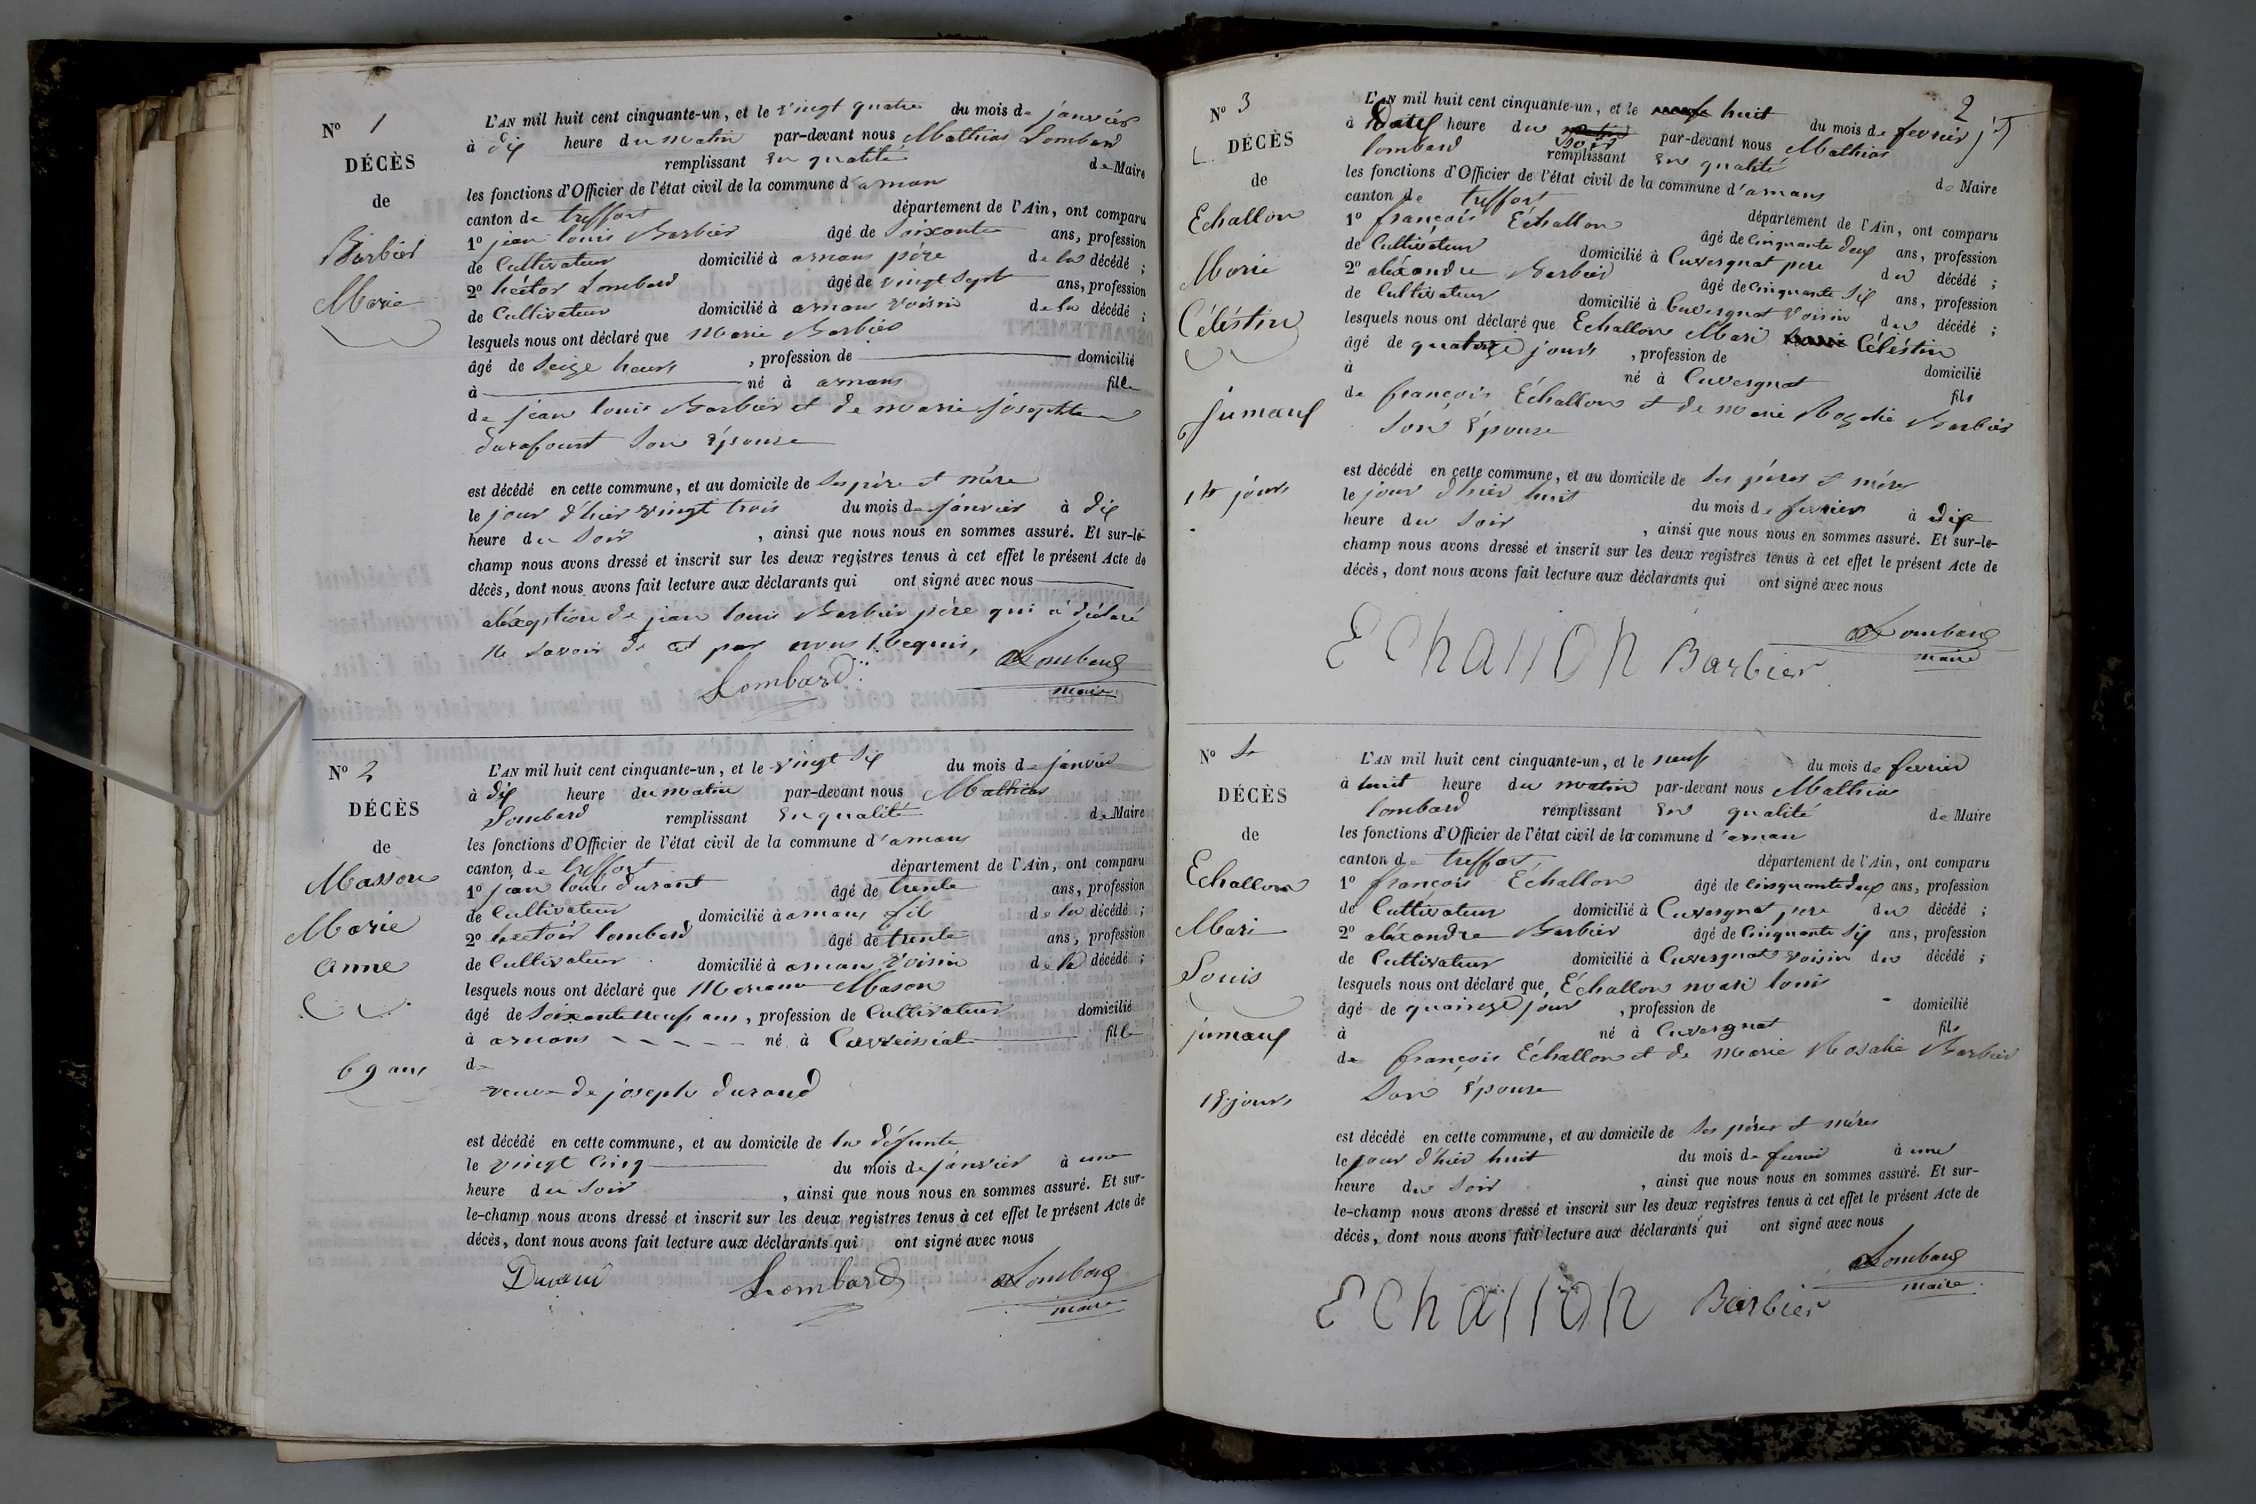 N° 1
DÉCÈS
de
Barbier
Marie
L'AN mil huit cent cinquante-un, et le vingt quatre du mois de janvier
à dix heure du matin par-devant nous Mathias Lombard
remplissant en qualité de Maire
les fonctions d'Officier de l'état civil de la commune d'arnans
canton de treffort département de l'Ain, ont comparu
1° jean louis Barbier âgé de soixante ans, profession
de Cultivateur domicilié à arnans père de la décédé ;
2° héctor Lombard âgé de vingt sept ans, profession
de Cultivateur domicilié à arnans voisin de la décédé ;
lesquels nous ont déclaré que Marie Barbier
âgé de seize heurs , profession de domicilié
à né à arnans fille
de jean louis Barbier et de marie josephte
durafourt son épouse
est décédé en cette commune, et au domicile de ses père et mère
le jour d'hier vingt trois du mois de janvier à dix
heure du soir , ainsi que nous nous en sommes assuré. Et sur-le-
champ nous avons dressé et inscrit sur les deux registres tenus à cet effet le présent Acte de
décès, dont nous avons fait lecture aux déclarants qui ont signé avec nous
aléxeption de jean louis Barbier père qui a déclaré
ne savoir de et par nous Requis,
Lombard Lombard
maire
N° 2
DÉCÈS
de
Masson
Marie
anne
69 ans
L'AN mil huit cent cinquante-un, et le vingt six du mois de janvier
à dix heure du matin par-devant nous Mathias
Lombard remplissant en qualité de Maire
les fonctions d'Officier de l'état civil de la commune d'arnans
canton de treffort département de l'Ain, ont comparu
1° jean louis durant âgé de trente ans, profession
de Cultivateur domicilié à arnans fils de la décédé ;
2° hectoir lombard âgé de trente ans, profession
de Cultivateur domicilié à arnans voisin de la décédé ;
lesquels nous ont déclaré que Mason
âgé de soixante neuf ans , profession de Cultivateur domicilié
à arnans né à Corveissiat fille
de
veuve de joseph durand
est décédé en cette commune, et au domicile de la défunte
le vingt cinq du mois de janvier à une
heure du soir , ainsi que nous nous en sommes assuré. Et sur-
le-champ nous avons dressé et inscrit sur les deux registres tenus à cet effet le présent Acte de
décès, dont nous avons fait lecture aux déclarants qui ont signé avec nous
Lombard Lombard
maire
2
N° 3
DÉCÈS
de
Echallon
Marie
Céléstin
jumaux
14 jours
L'AN mil huit cent cinquante-un, et le huit du mois de fevrier
à heure du soir par-devant nous Mathias
lombard remplissant en qualité de Maire
les fonctions d'Officier de l'état civil de la commune d'arnans
canton de treffort département de l'Ain, ont comparu
1° françois Échallon âgé de cinquante deux ans, profession
de Cultivateur domicilié à Cuvergnat pere du décédé ;
2° aléxandre Barbier âgé de cinquante six ans, profession
de Cultivateur domicilié à Cuvergnat voisin du décédé ;
lesquels nous ont déclaré que Echallon Mari Céléstin
âgé de quatorze jours , profession de domicilié
à né à Cuvergnat fils
de françois Échallon et de marie Rozalie Barbier
son épouse
est décédé en cette commune, et au domicile de ses péres et méres
le jour d'hier huit du mois de fevrier à dix
heure du soir , ainsi que nous nous en sommes assuré. Et sur-le-
champ nous avons dressé et inscrit sur les deux registres tenus à cet effet le présent Acte de
décès, dont nous avons fait lecture aux déclarants qui ont signé avec nous
Echallon Barbier Lombard
maire
N° 4
DÉCÈS
de
Echallon
Mari
Louis
jumaux
15 jours
L'AN mil huit cent cinquante-un, et le neuf du mois de fevrier
à huit heure du matin par-devant nous Mathias
lombard remplissant en qualité de Maire
les fonctions d'Officier de l'état civil de la commune d'arnan
canton de treffort département de l'Ain, ont comparu
1° françois Échallon âgé de cinquante deux ans, profession
de Cultivateur domicilié à Cuvergnat pere du décédé ;
2° aléxandre Barbier âgé de Cinquante six ans, profession
de Cultivateur domicilié à Cuvergnat voisin du décédé ;
lesquels nous ont déclaré que Échallon mari louis
âgé de quainze jour , profession de domicilié
à né à Cuvergnat fils
de françois Échallon et de marie Rosalie Barbier
son épouse
est décédé en cette commune, et au domicile de ses péres et méres
le jour d'hier huit du mois de fevrier à une
heure du soir , ainsi que nous nous en sommes assuré. Et sur-
le-champ nous avons dressé et inscrit sur les deux registres tenus à cet effet le présent Acte de
décès, dont nous avons fait lecture aux déclarants qui ont signé avec nous
Echallon Barbier Lombard
maire